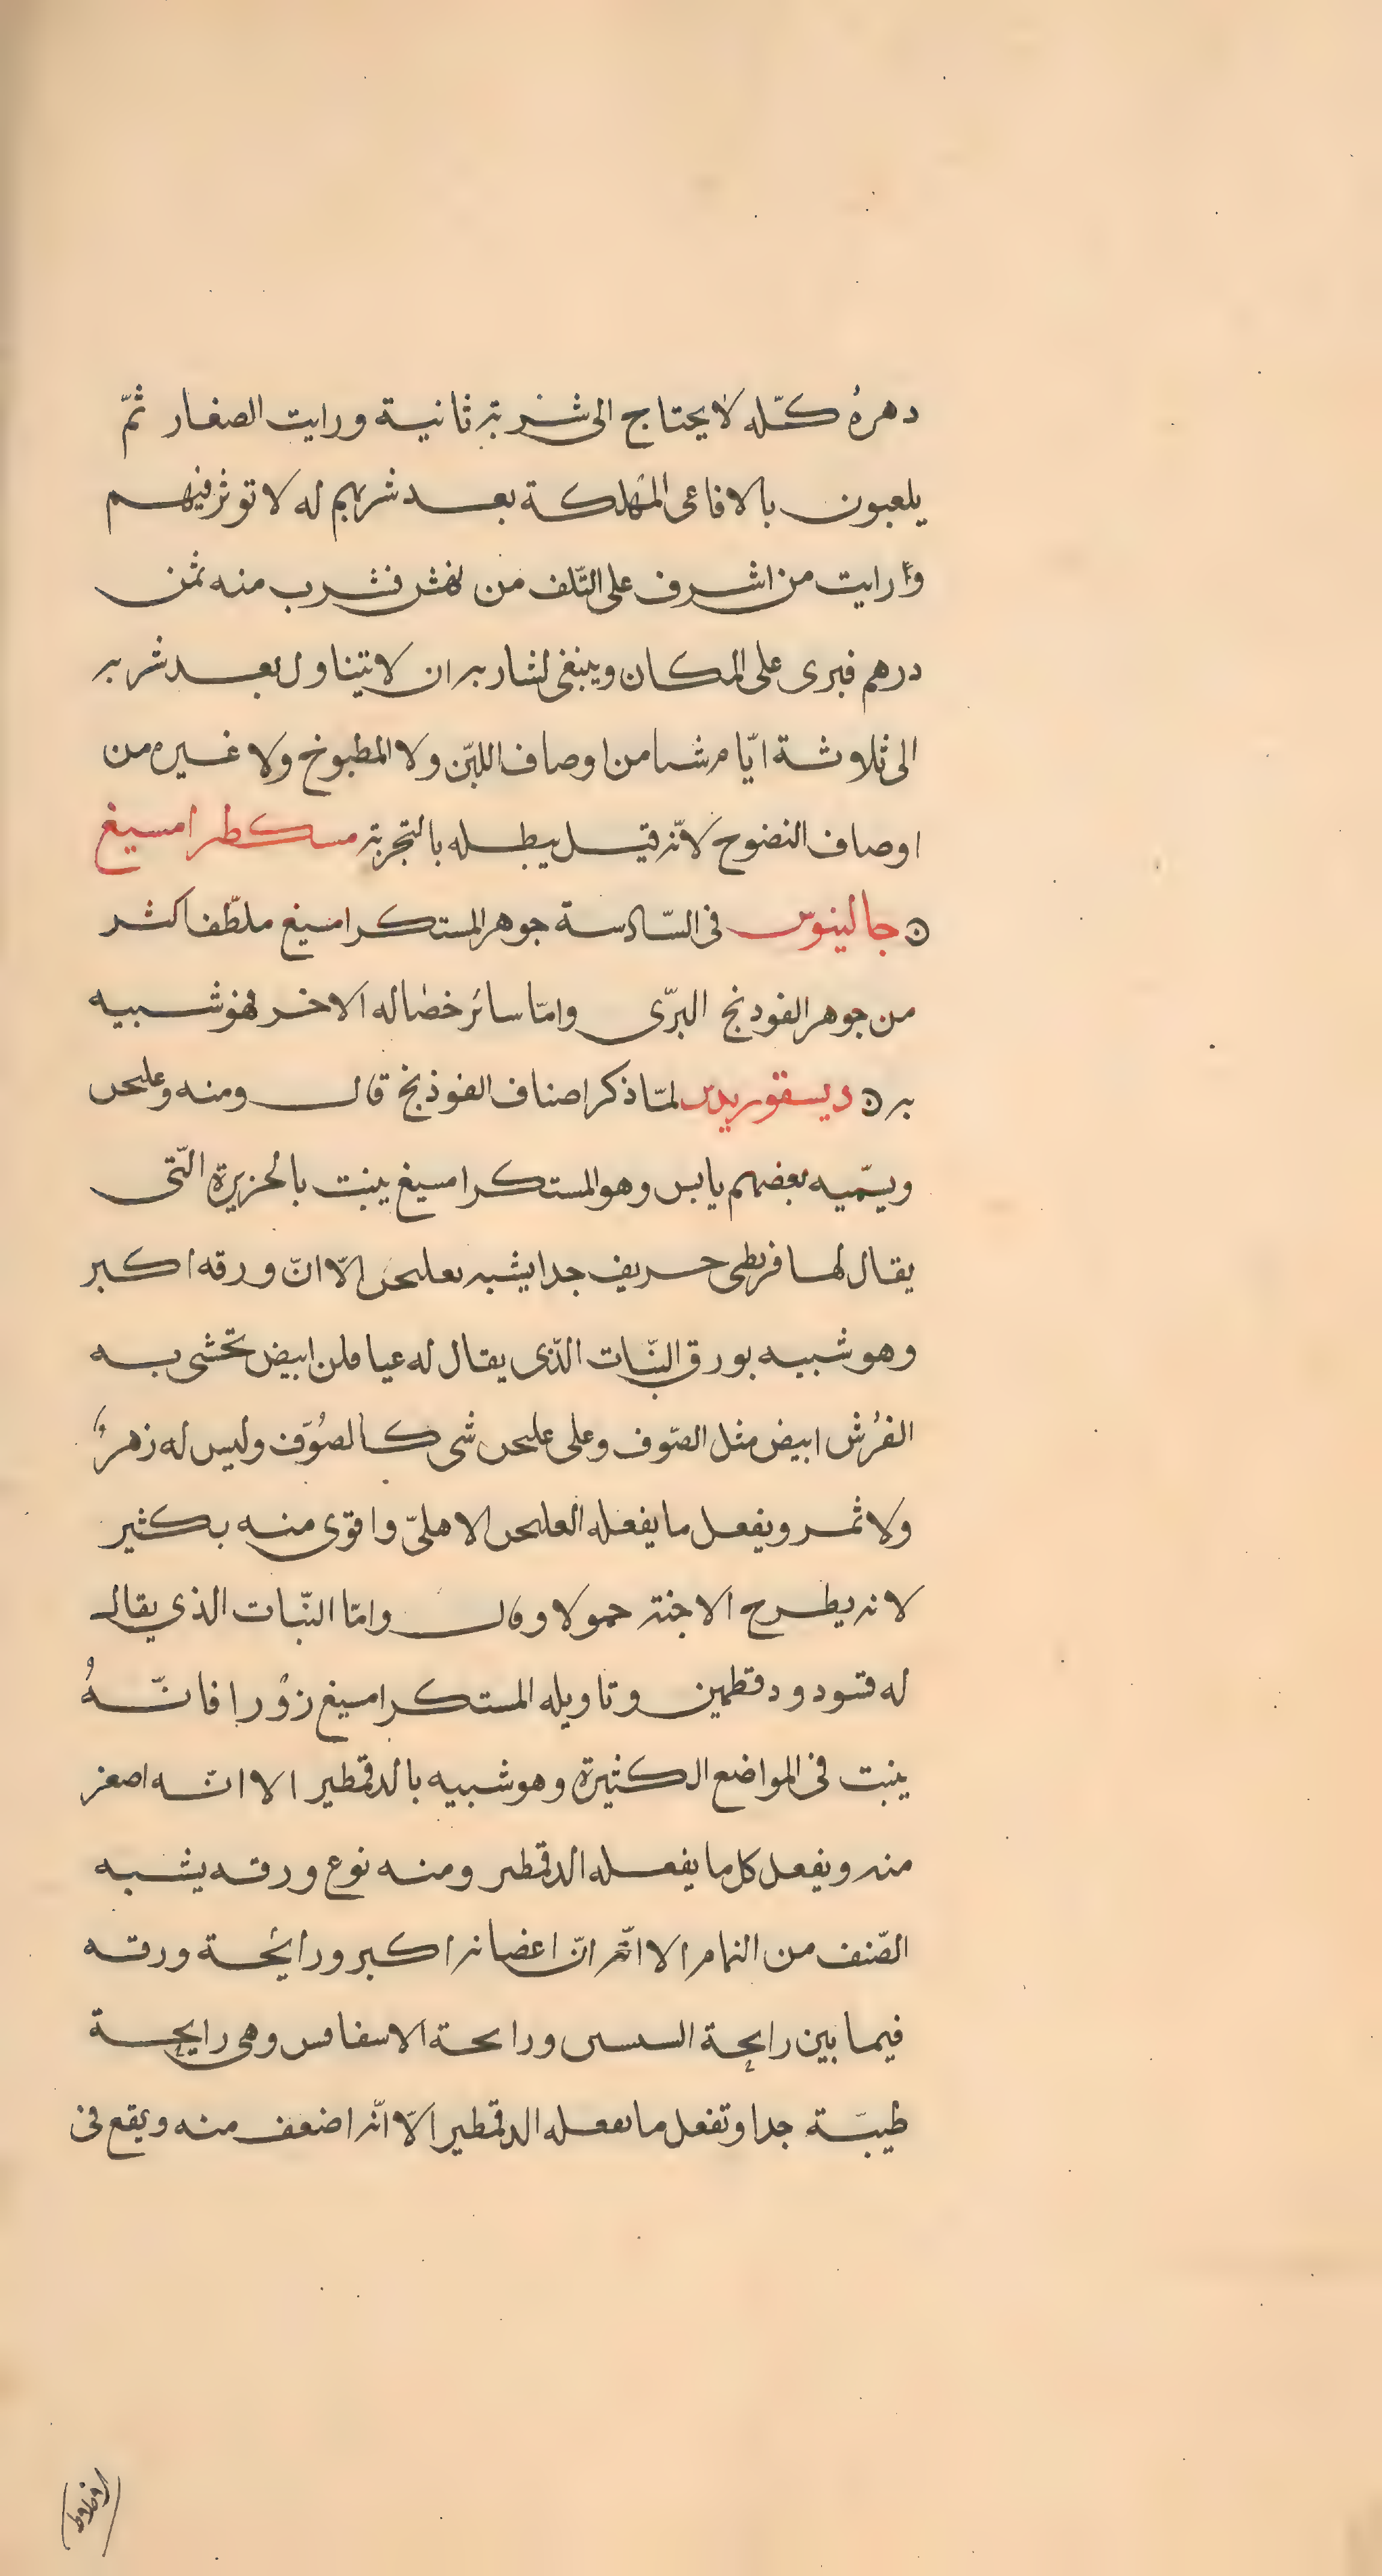 دهرهُ كلّه لا يحتاج الى شربة ثانية ورايت الصغار ثمّ
يلعبون بالافاعى المهلكة بعد شربهم له لا توثر فيهم
ورايت من اشرف على التّلف من نهش فشرب منه ثمن
درهم فبرى على المكان وينبغى لشاربه ان لا يتناول بعد شربه
الى ثلاثة ايّام شيا من اوصاف اللبّن ولا المطبوخ ولا غيره من
اوصاف النضوح لانّه قيل يبطله بالتجربة مسكطرامسيغ
۞ جالينوس فى السّادسة جوهر المستكرامسيغ ملطّف اكثر
من جوهر الفودنج البرّى وامّا سائر خصاله الاخر فهو شبيه
به ۞ ديسقوريدس لمّا ذكر اصناف الفوذنج قال ومنه وعلىحں
ويسّميه بعضهم يابس وهو المستكرامسيغ ينبت بالجزيرة الّتى
يقال لها قريطى حريف جدا يشبه بعلىحں الّا انّ ورقه اكبر
وهو شبيه بورق النّبات الذّى يقال له عيافلن ابيض تحشى به
الفُرُش ابيض مثل الصّوف وعلى علىحں شى كالصُوّف وليس له زهرٌ
ولا ثمر ويفعل ما يفعله العلىحں الاهلىّ واقوى منه بكثير
لانه يطرح الاجنة حمولا وقال وامّا النّبات الذي يقال
له قسود ودقطمين وتاويله المستكرامسيغ زوْرا فانّهُ
ينبت فى المواضع الكثيرة وهو شبيه بالدقمطير الا انّه اصغر
منه ويفعل كل ما يفعله الدقمطىر ومنه نوع ورقه يشبه
الصّنف من النمام الا انّه انّ اغصانه اكبر ورائحة ورقه
فيما بين رايحة السىسىر ورايحة الاسفاقس وهى رايحة
طيبّة جدا وتفعل ما يفعله الدقمطير الّا انّه اضعف منه ويقع فى